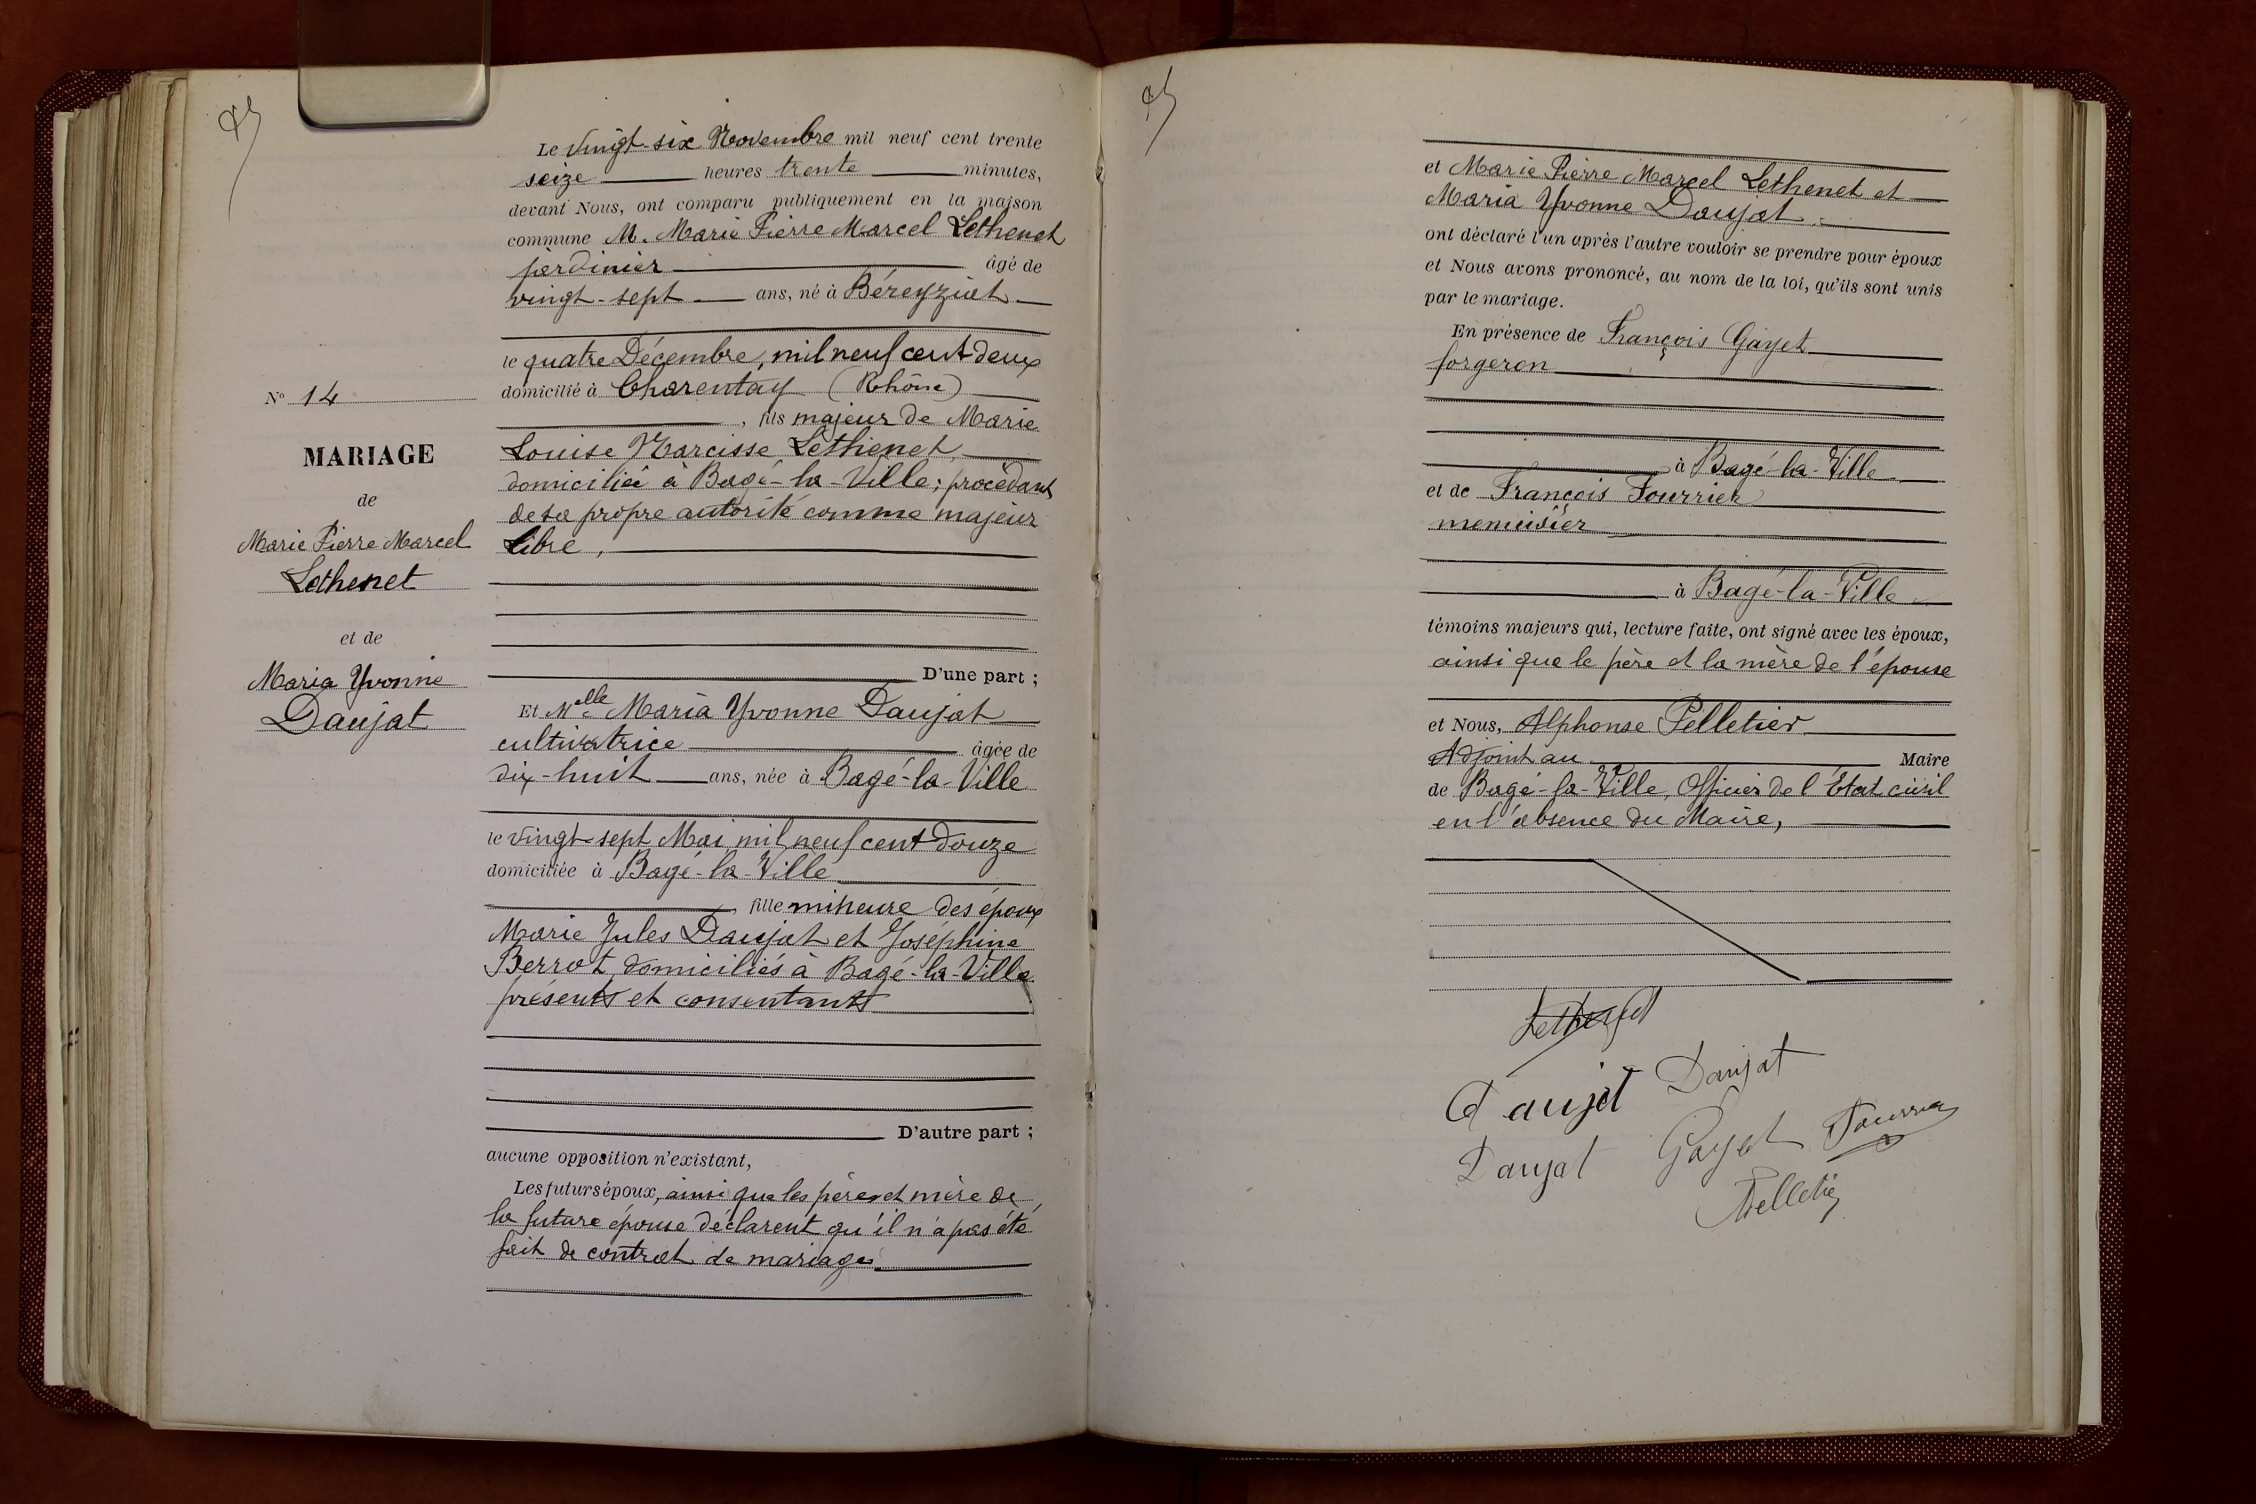 Le vingt-six Novembre mil neuf cent trente
seize heures trente minutes,
devant Nous, ont comparu publiquement en la maison
commune M. Marie Pierre Marcel Lethenet
jardinier âgé de
vingt-sept ans, né à Béreyziat
le quatre Décembre, mil neuf cent deux
domicilié à Charentay (Rhône)
, fils majeur de Marie
Louise Narcisse Lethenet,
domiciliée à Bagé-la-Ville; procédant
de sa propre autorité comme majeur
libre,
D'une part ;
Et Melle Maria Yvonne Daujat
cultivatrice âgée de
dix-huit ans, née à Bagé-la-Ville
le vingt-sept Mai mil neuf cent douze
domiciliée à Bagé-la-Ville
fille mineure des époux
Marie Jules Daujat et Joséphine
Berrot, domiciliés à Bagé-la-Ville
présents et consentants
D'autre part ;
aucune opposition n'existant,
Les futurs époux, ainsi que les père et mère de
la future épouse déclarent qu'il n'a pas été
fait de contrat de mariage
N° 14
MARIAGE
de
Marie Pierre Marcel
Lethenet
et de
Maria Yvonne
Daujat
et Marie Pierre Marcel Lethenet et
Maria Yvonne Daujat
ont déclaré l'un après l'autre vouloir se prendre pour époux
et Nous avons prononcé, au nom de la loi, qu'ils sont unis
par le mariage.
En présence de François Gayet
forgeron
à Bagé-la-Ville
et de François Fourrier
menuisier
à Bagé-la-Ville
témoins majeurs qui, lecture faite, ont signé avec les époux,
ainsi que le père et la mère de l'épouse
et Nous, Alphonse Pelletier
Adjoint au Maire
de Bagé-la-Ville, Officier de l'Etat civil
en l'absence du Maire,
Lethenet
Daujat Daujat
Daujat Gayet Fourrier
Pelletier